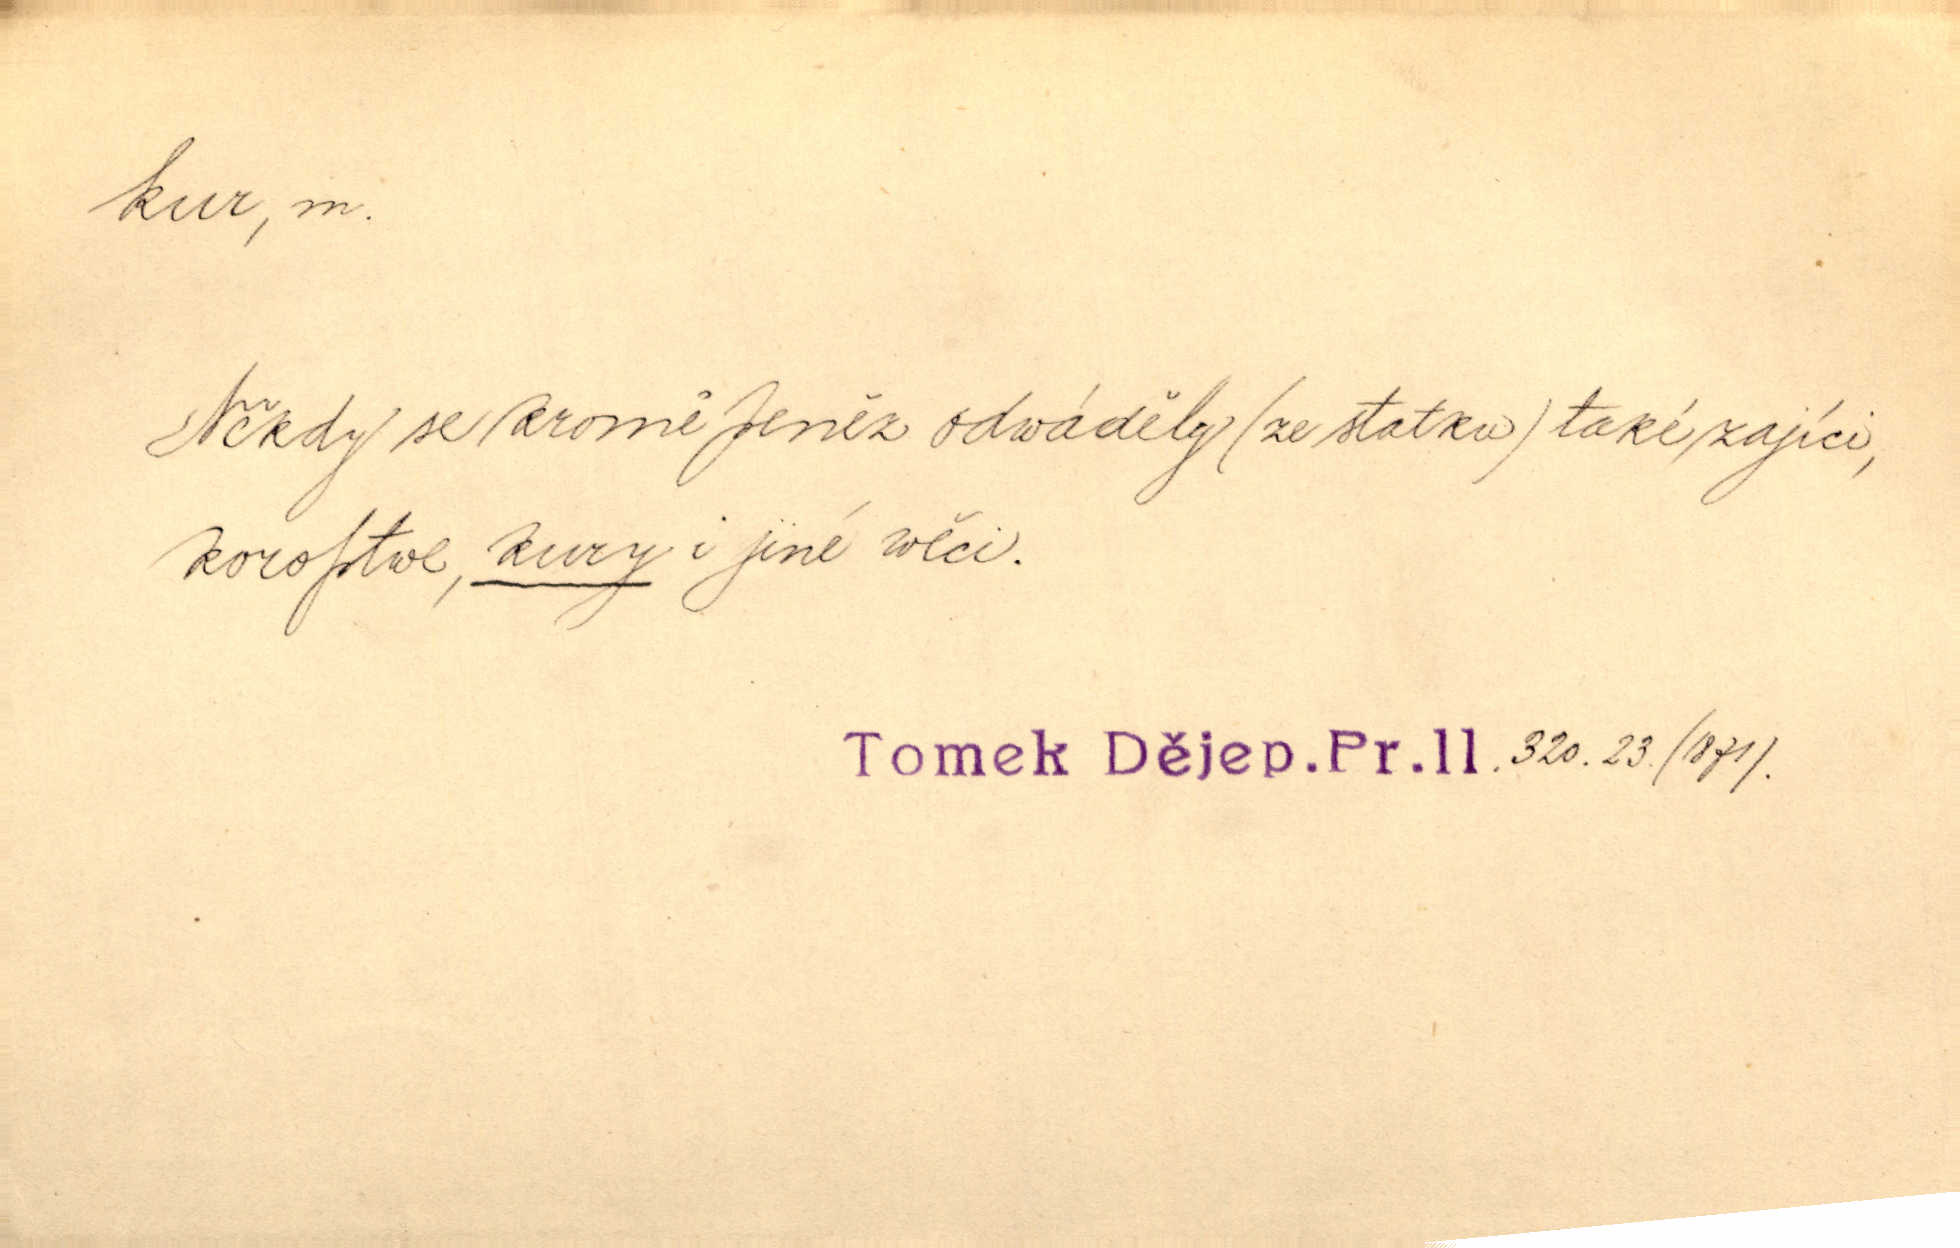 kur, m.
Někdy se kromě peněz odwáděly (ze statku) také zajíci,
koroptwe, kury i jiné wěci.
Tomek Dějep. Pr. II. 320. 23. (1871).